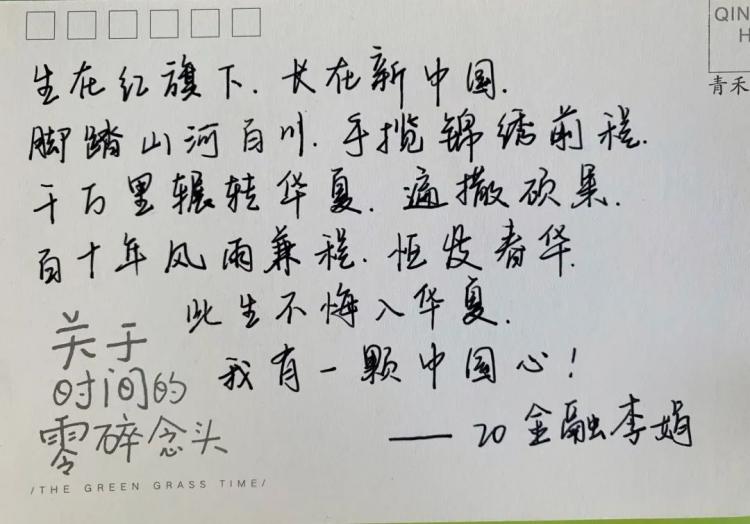 QIN
H
青禾
生在红旗下.长在新中国.
脚踏山河百川.手揽锦绣前程.
千万里辗转华夏.遍撒硕果.
百十年风雨兼程.恒发春华.
此生不悔入华夏.
我有一颗中国心!
——20金融李娟
关于
时间的
零碎念头
/THE GREEN GRASS TIME/